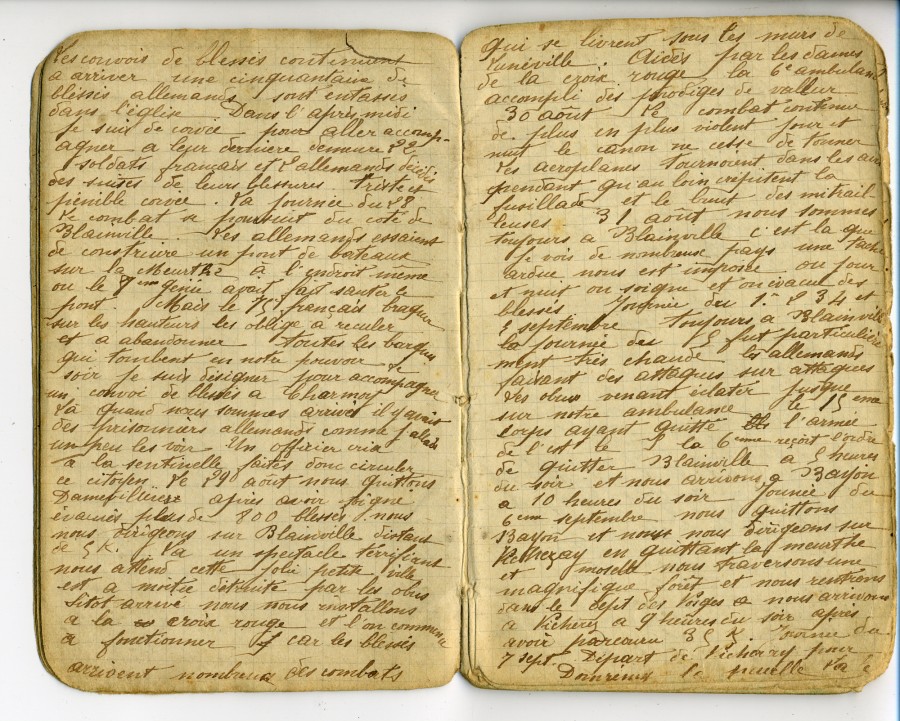 Les convois de blessés continuent
a arriver une cinquantaine de
blésis allemands sont entassés
dans l'église Dans l'après midi
Je suis de corvée pour aller accomp-
agner a leur derniere demeure 22
soldats français et 2 allemands décédés
des suites de leurs blessures. Triste et
penible corvée. La journée du 28
Le combat se poursuit du coté de
Blainville. Les allemands essaient
de construire un pont de bateaux
sur la Meurthe à l'endroit meme
ou le génie avait fait sauter le
pont. Mais le 75 français braquer
sur les hauteurs les oblige a reculer
et a abandonner toutes les barques
qui tombent en notre pouvoir Le
soir je suis désigner pour accompagner
un convoi de blessés a Charmoy
La quand nous sommes arrivés il y avait
des prisonniers allemands comme j'allais
un peu les voir Un officier cria
a la sentinelle faites donc circuler
ce citoyen Le 29 aout nous quittons
Damelilières après avoir soigné
évacués plus de 800 blessés nous
nous dirigeons sur Blainville distant
de 5 K. La un spectacle terrifiant
nous attend cette jolie petite ville
est a moitié détruite par les obus
Sitot arrivé nous nous installons
a la croix rouge et l'on commence
a fonctionner car les blessés
arrivent nombreux des combats
qui se livrent sous les murs de
Lunéville. Aidés par les dames
de la croix rouge la 6e ambulance
accompli des prodiges de valeur
30 août Le combat continue
de plus en plus violent jour et
nuit le canon ne cesse de tonner
Les aeroplanes tournoient dans les airs
pendant qu'au loin crépitent la
fusillade et le bruit des mitrail
leuses 31 aout nous sommes
toujours a Blainville c'est la que
je vois de nombreux pays une tache
ardue nous est imposée ou jour
et nuit on soigne et on évacue des
blessés Journée du 1er 2 3 4 et
5 septembre toujours a Blainville
la journée du 5 fut particuliére
ment très chaude les allemands
faisant des attaques sur attaques
Les obus venant éclater jusque
sur notre ambulance le 15eme
corps ayant quitté l'armée
de l'est le 5 la 6eme reçoit l'ordre
de quitter Blainville a 5 heures
du soir et nous arrivons a Bayon
a 10 heures du soir Journée du
6eme septembre nous quittons
Bayon et nous nous dirigeons sur
Vicherey en quittant la meurthe
et moselle nous traversons une
magnifique forêt et nous rentrons
dans le dept des Vosges nous arrivons
a Vicherey a 9 heures du soir après
avoir parcouru 35 K. Journée du
7 sept. Départ de Vicherey pour
Domremy la pucelle La le